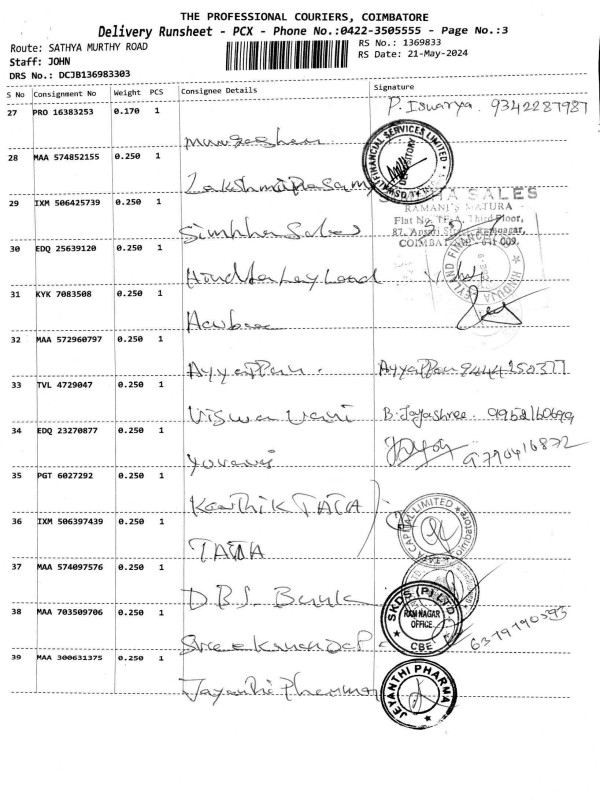 THE PROFESSIONAL COURIERS, COIMBATORE
Delivery Runsheet - PCX - Phone No.:0422-3505555 - Page No.:3
Route: SATHYA MURTHY ROAD
RS No.: 1369833
Staff: JOHN
RS Date: 21-May-2024
DRS No.: DCJB136983303
S No Consignment No Weight PCS Consignee Details Signature
27 PRO 16383253 0.170 1 P. Iswarya. 9342287987
Murugeshan
28 MAA 574852155 0.250 1
FINANCIAL SERVICES LIMITED
29 IXM 506425739 0.250 1
SIMHHA SALES
RAMANI'S MATURA
Flat No. TF-A, Third Floor,
87, Ansari Street, Ramnagar,
COIMBATORE - 641 009.
Simhha Sales
30 EDQ 25639120 0.250 1
HINDUJA LEYLAND FINANCE
Hinduja Leyland
31 KYK 7083508 0.250 1
32 MAA 572960797 0.250 1
Ayyappan. Ayyappan 9444250377
33 TVL 4729047 0.250 1
Viswa Vani B. Jayashree. 9952160699
34 EDQ 23270877 0.250 1
9790416872
35 PGT 6027292 0.250 1
Karthik TATA
36 IXM 506397439 0.250 1
TATA CAPITAL LIMITED
Coimbatore
TATA
37 MAA 574097576 0.250 1
D.B.S. Bank
38 MAA 703509706 0.250 1
SKDS (P) LTD
RAM NAGAR
OFFICE
CBE
6379190393
39 MAA 300631375 0.250 1
Jayanthi Pharma
JEYANTHI PHARMA